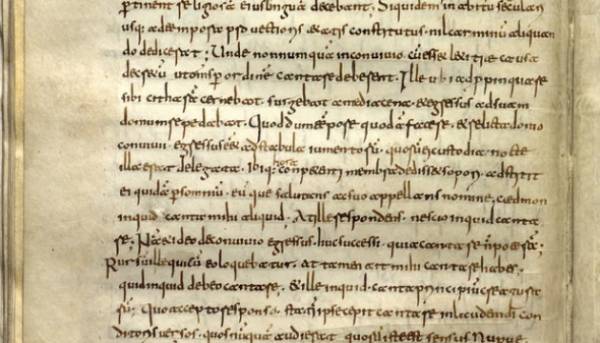 ꝑtinent religiosā eius linguā decebant. Siquidem in abitu seculari
usq; ad tempora ꝓuectioris etatis constitutus. nil carminū aliquan
do dedicerat; Unde nonnumquā in conuiuio cū esset lętitię causa
decretū ut omnes per ordinē cantare deberent. Ille ubi adpropinquare
sibi citharā cernebat. surgebat a media cena. & egressus ad suam
domum repedabat. Quod dum tēpore quodā faceret. & relicta domo
conuiuii egressus eēt ad stabula iumentorū. quorū ei custodia nocte
illa erat delegata. ibiq; hora cōpetenti membra dedisset sopori. adstitit
ei quidā ꝑ somniū. eūque salutans ac suo appellans nomine. cędmon
inquid canta mihi aliquid. At ille respondens. nescio inquid canta
re; Nā & ideo de conuiuio egressus huc successi. quia cantare n̄ poterā;
Rursū ille qui cū eo loquebatur. At tamen ait mihi cantare habes.
quid inquid debeo cantare. & ille inquid. canta principiū creatura
rū. Quo accepto responso. statī ipse cepit cantare in laudem dei con
ditoris uersos. quos nūquā audierat quorū iste est sensus. Nunc